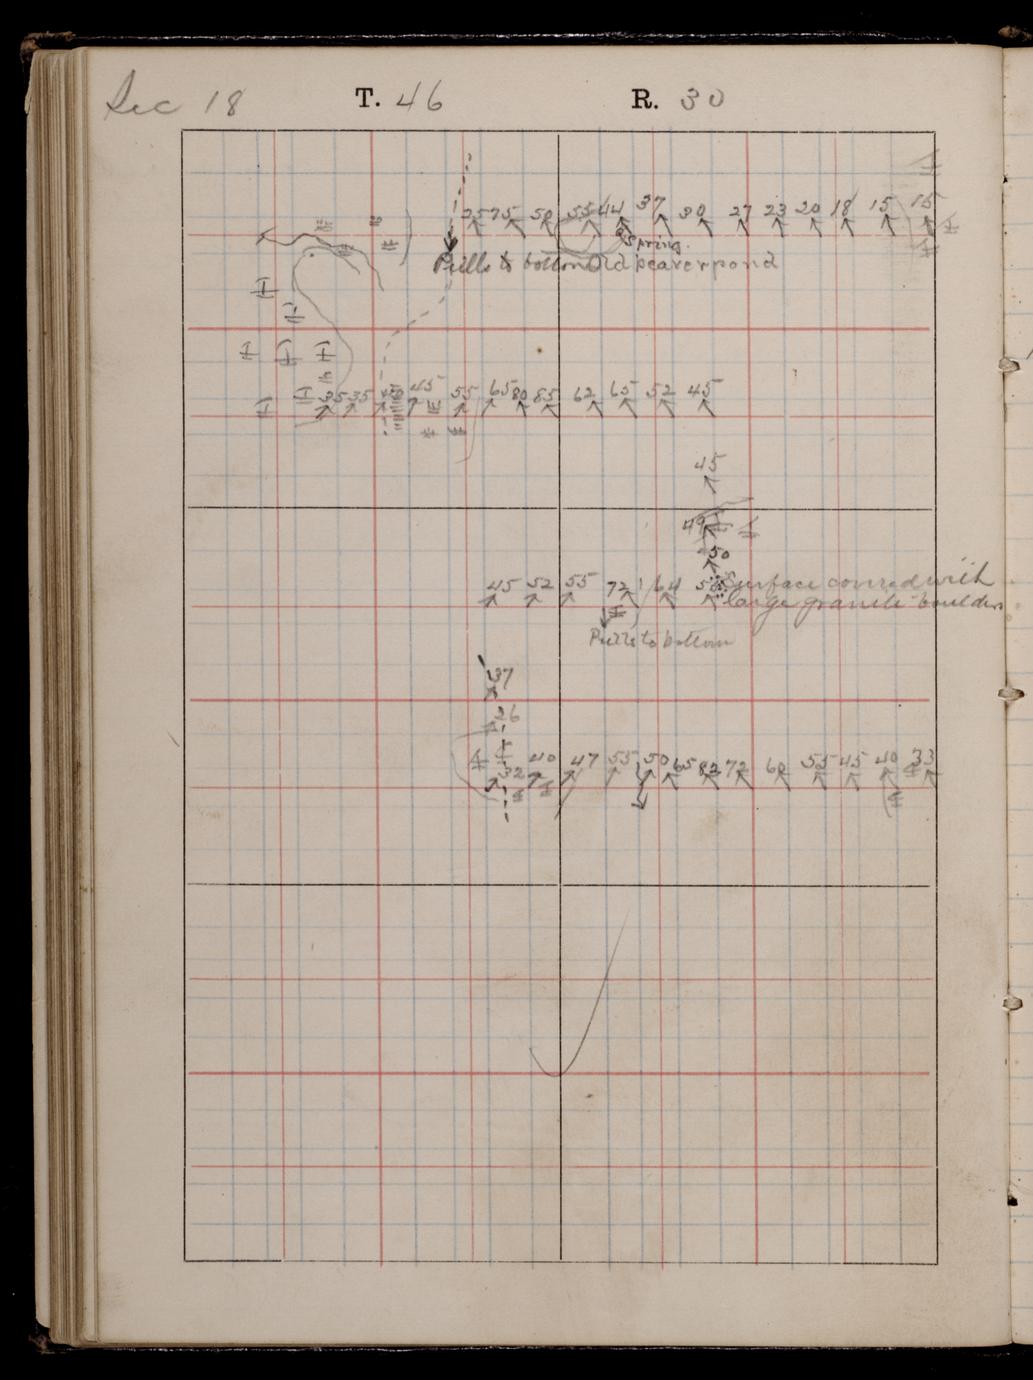 Sec 18 T. 46 R. 30
75 50 55 44 37 30 27 23 20 18 15 15
Spring.
Pulls to bottom Old beaver pond
35 35 45 55 65 80 85 62 65 52 45
45
49
50
45 52 55 72 64 Surface covered with
large granite boulders
Pulls to bottom
37
26
32 40 47 55 50 65 82 72 60 55 45 40 33